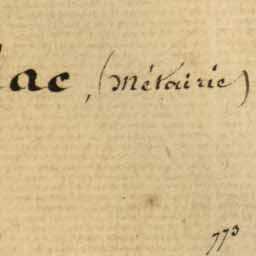 ac, (Métairie)
773